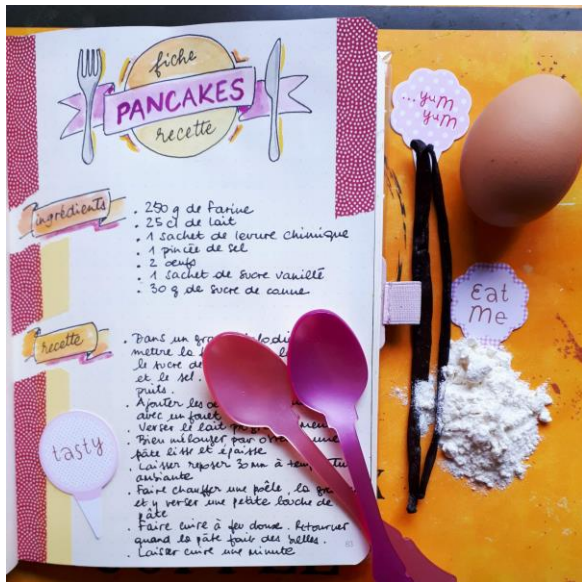 fiche
PANCAKES
recette
... yum
yum
ingrédients
. 250 g de farine
. 25 cl de lait
. 1 sachet de levure chimique
. 1 pincée de sel
. 2 oeufs
. 1 sachet de sucre vanillé
. 30 g de sucre de canne
eat
me
recette
. Dans un
mettre la
le sucre de
et le sel.
puits.
. Ajouter les
avec un fouet
. Verser le lait
. Bien mélanger pour une
pâte lisse et épaisse
. Laisser reposer 30 mn à
ambiante
. Faire chauffer une poêle, la
et y verser une petite louche de
pâte
. Faire cuire à feu doux. Retourner
quand la pâte fait des bulles.
. Laisser cuire une minute
tasty